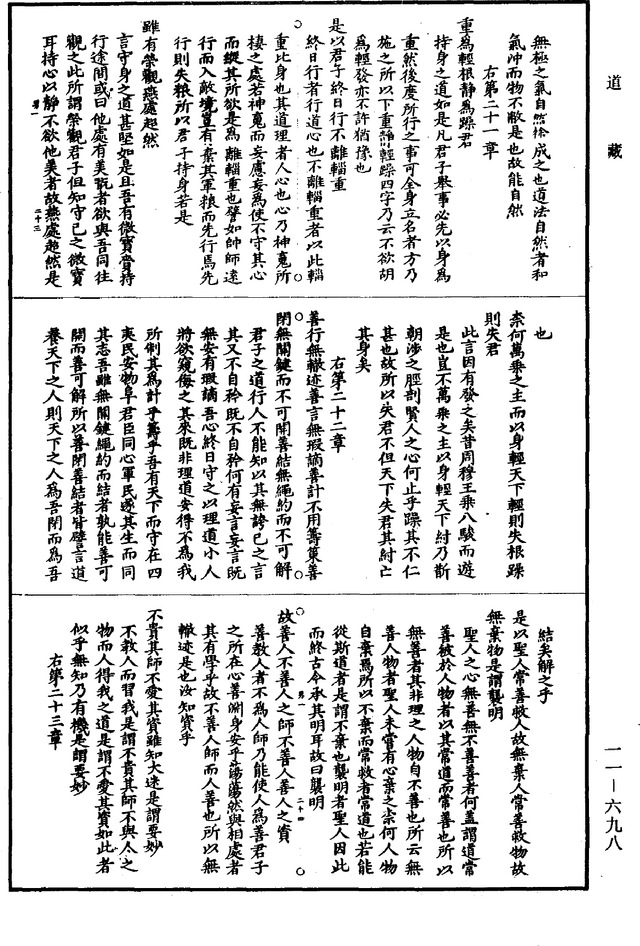 道藏
無極之氣自然徐成之也道法自然者和
氣冲而物不敝是也故能自然
右第二十一章
重為輕根靜為躁君
持身之道如是凡君子舉事必先以身為
重然後度所行之事可全身立名者方乃
施之所以下重靜輕躁四字乃云不欲胡
為輕發亦不許猶豫也
是以君子終日行不離輜重
終日行者行道心也不離輜重者以此輜
重比身也其道理者人心也心乃神䰟所
棲之處若神䰟而妄慮妄為使不守其心
而縱其所欲是為離輜重也譬如帥師遠
行而入敵境豈有棄其軍粮而先行焉先
行則失粮所以君子持身若是
雖有榮觀燕處超然
言守身之道甚堅如是且吾有微寶賫持
行途間或曰他處有美翫者欲與吾同往
觀之此所謂榮觀君子但知守己之微寶
耳持心以靜不欲他美者故燕處超然是
第一
二十三
也
柰何萬乘之主而以身輕天下輕則失根躁
則失君
此言因有發之矣昔周穆王乘八駿而遊
是也豈不萬乘之主以身輕天下紂乃斮
朝涉之脛剖賢人之心何止乎躁其不仁
甚也故所以失君不但天下失君其紂亡
其身矣
右第二十二章
善行無轍迹善言無瑕讁善計不用籌策善
閉無關鍵而不可開善結無繩約而不可解
君子之道行人不能知以其無誇已之言
其又不自矜既不自矜何有妄言妄言既
無安有瑕讁吾心終日守之以理道小人
將欲窺侮之其來既非理道安得不為我
所制其為計乎籌乎吾有天下而守在四
夷民安物阜君臣同心軍民遂其生而同
其志吾雖無關鍵繩約而結者孰能善可
開而善可解所以善閉善結者皆譬言道
養天下之人則天下之人為吾閉而為吾
結矣解之乎
是以聖人常善救人故無棄人常善救物故
無棄物是謂襲明
聖人之心無善無不善善者何蓋謂道常
善被於人物者以其常道而常善也所以
無善者其非理之人物自不善也所云無
善人物者聖人未嘗有心棄之柰何人物
自棄焉所以不棄而常救者常道也若能
從斯道者是謂不棄也襲明者聖人因此
而終古今承其明耳故曰襲明
第一
二十四
故善人不善人之師不善人善人之資
善教人者不為人師乃能使人為善君子
之所在心善淵身安乎蕩蕩然與相處者
其有學乎故不善人師而人善也所以無
轍迹是也汝知資乎
不貴其師不愛其資雖知大迷是謂要妙
不教人而習我是謂不貴其師不與人之
物而人得我之道是謂不愛其資如此者
似乎無知乃有機是謂要妙
右第二十三章
一一—六九八